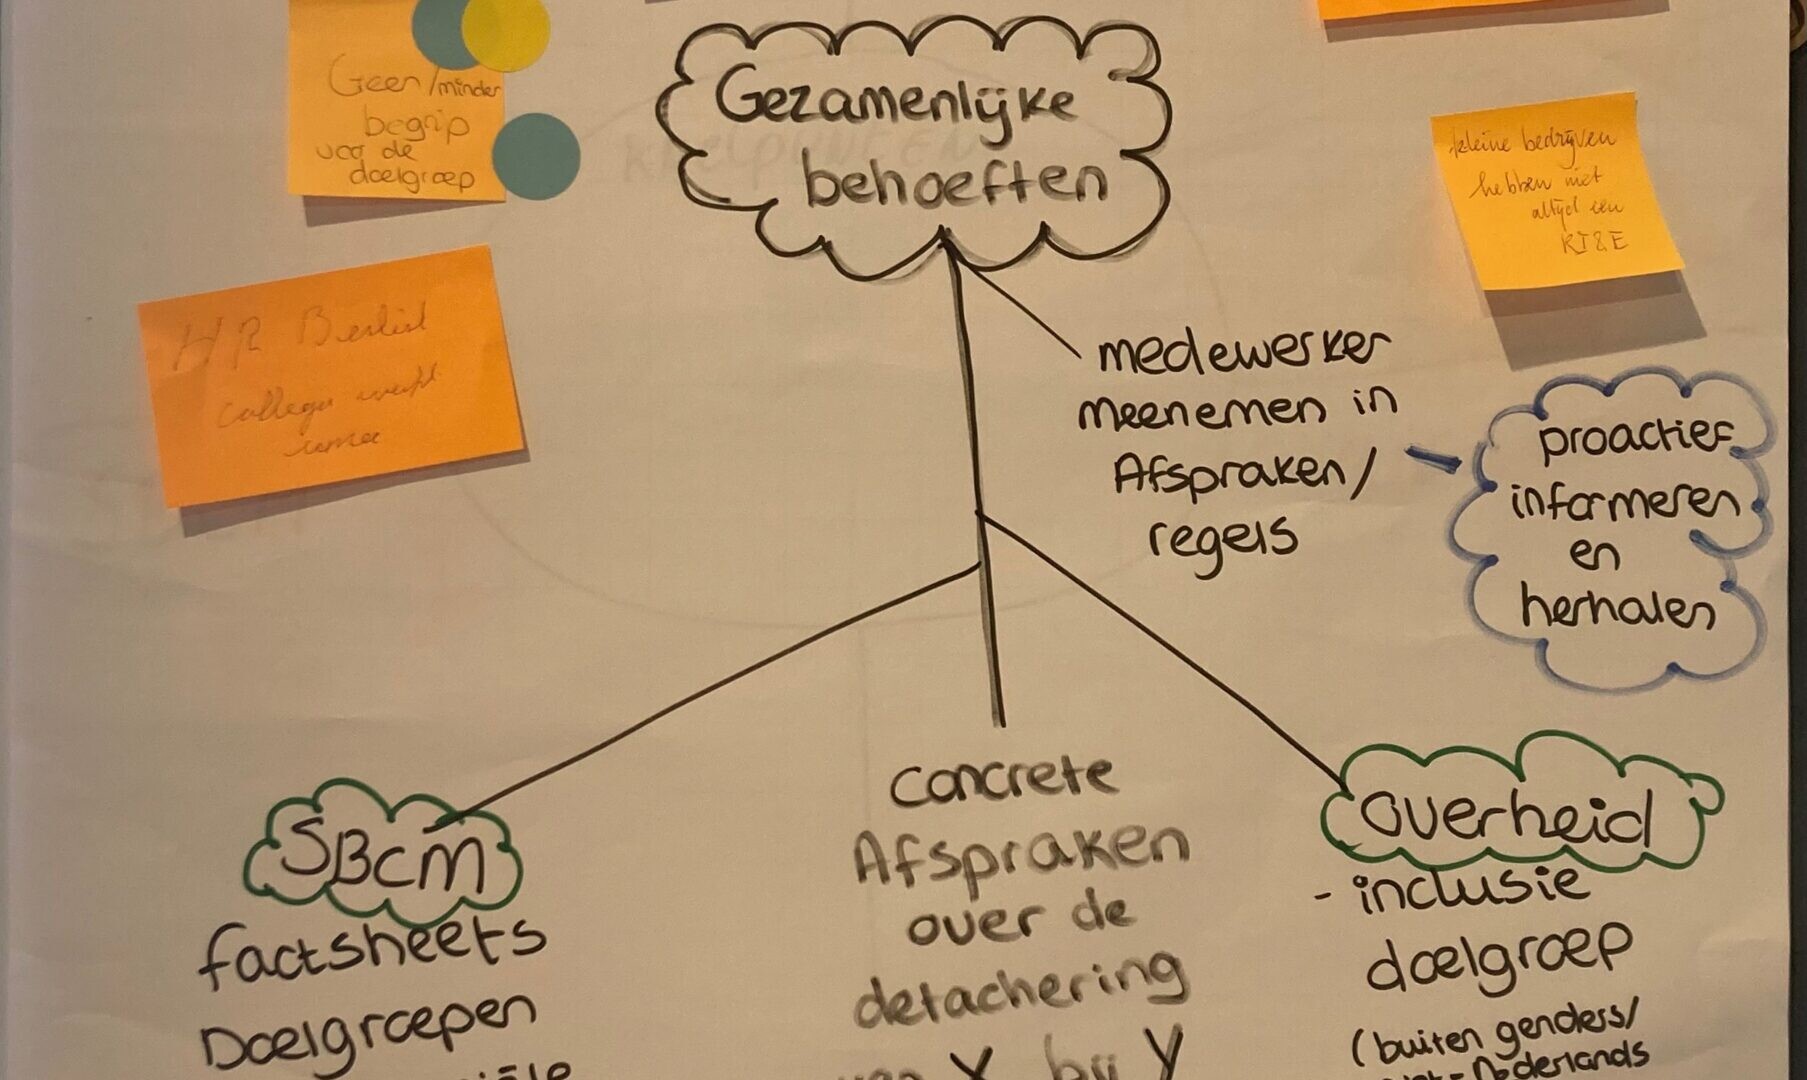 Geen/minder
begrip
voor de
doelgroep
Gezamenlijke
behoeften
kleine bedrijven
hebben niet
altijd een
RI&E
HR Beslist
collega werkt
medewerker
meenemen in
Afspraken/
regels
proactief
informeren
en
herhalen
SBCM
factsheets
Doelgroepen
concrete
Afspraken
over de
detachering
van X bij Y
overheid
- inclusie
doelgroep
(buiten genders/
niet-Nederlands